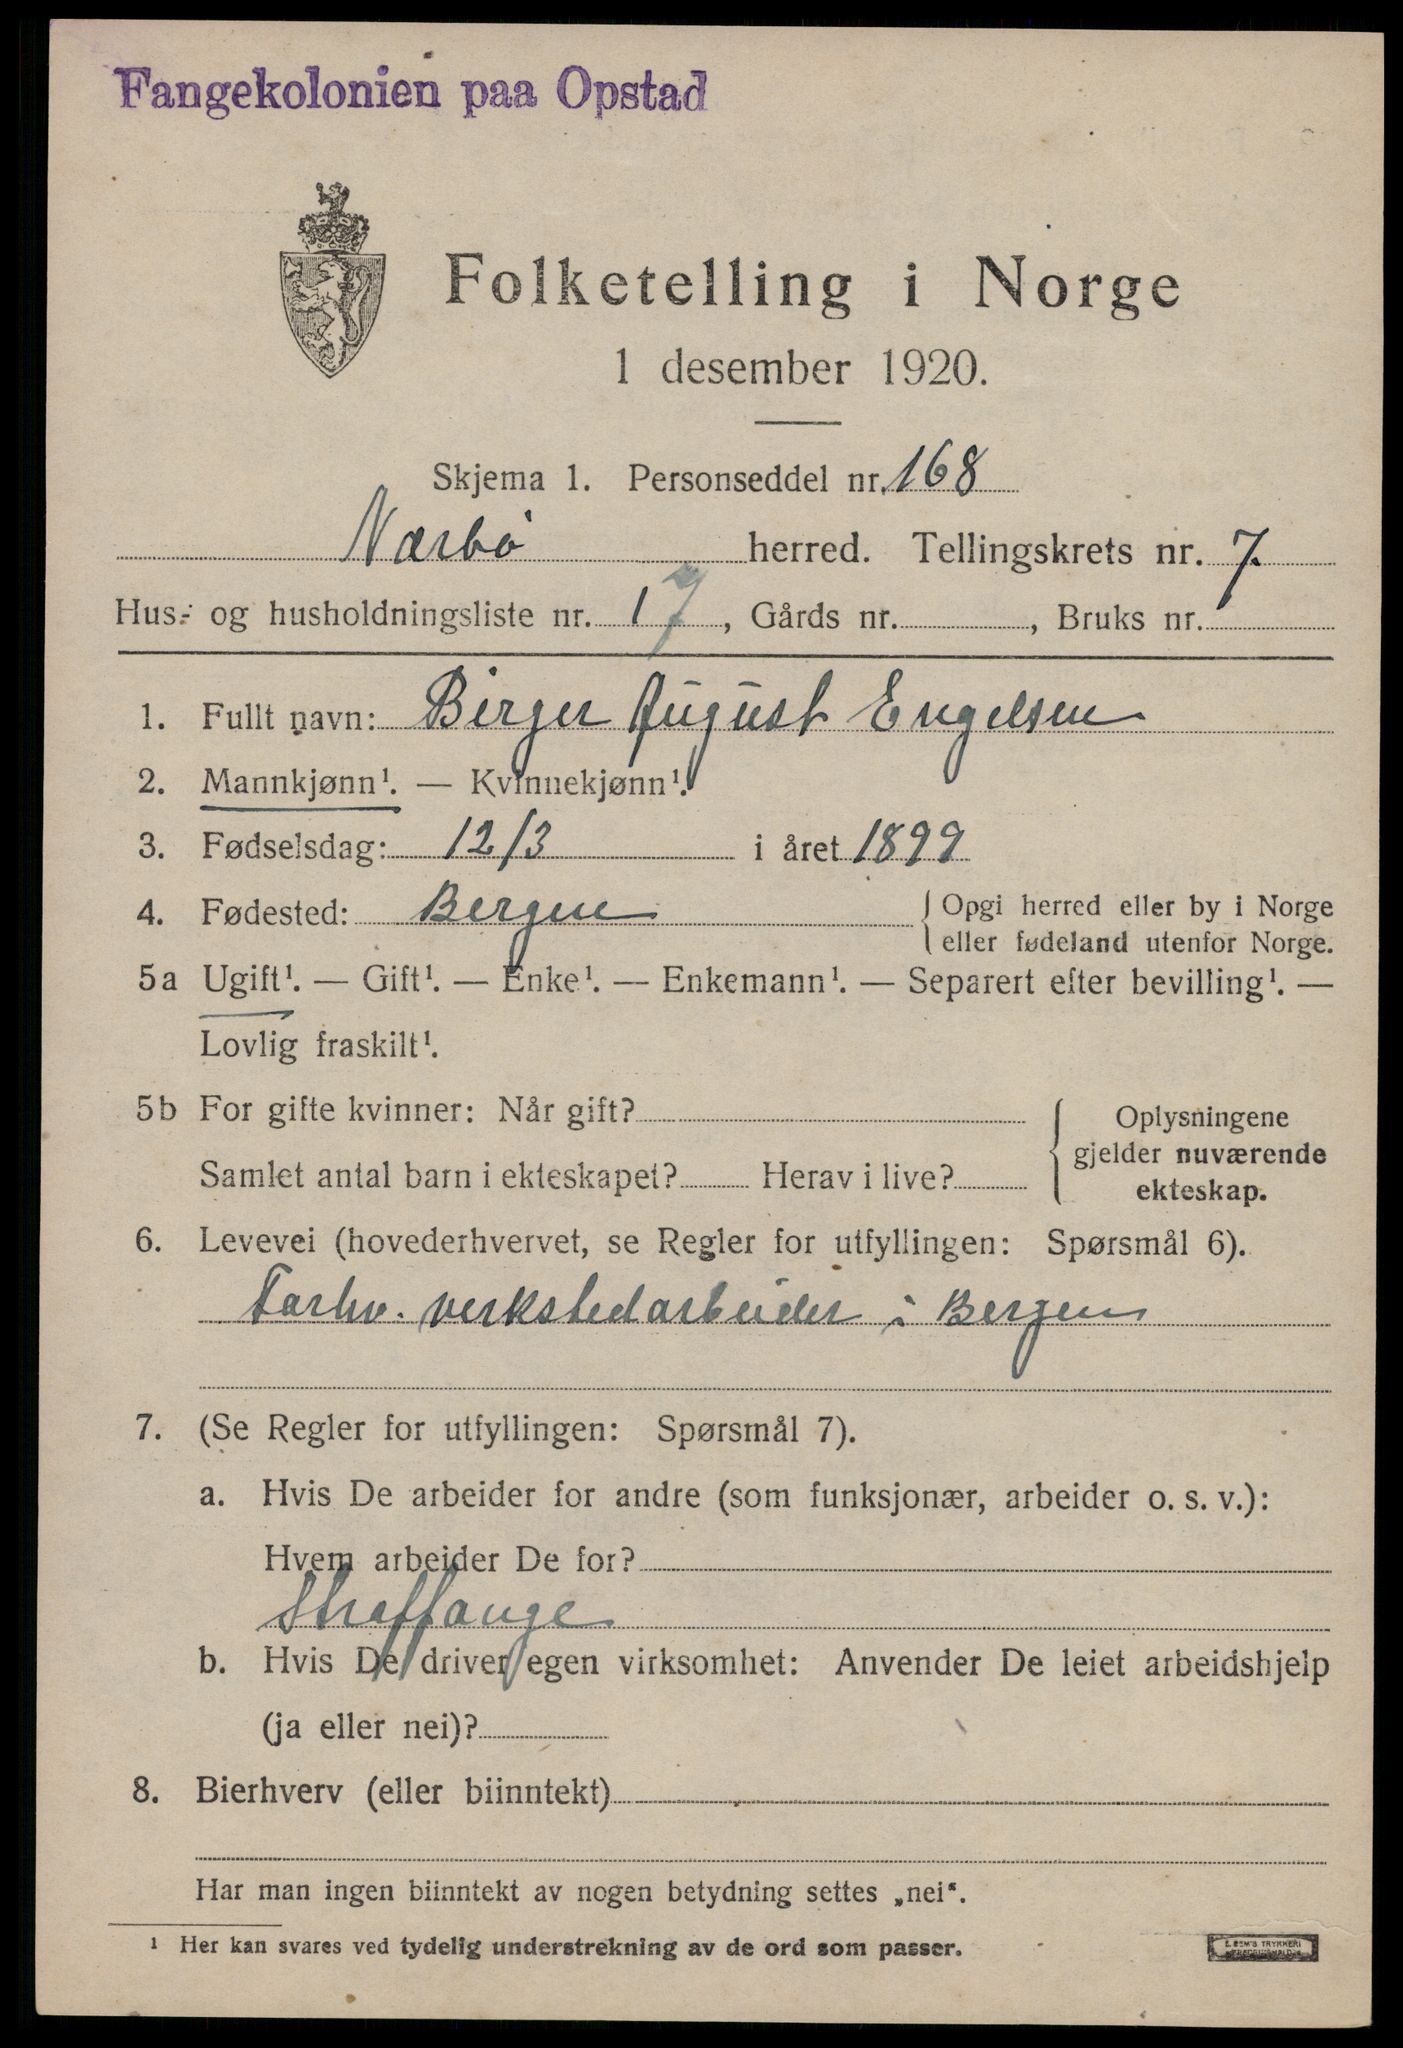 Fangekolonien paa Opstad
Folketelling i Norge
1 desember 1920.
Skjema 1. Personseddel nr. 168
Nærbø herred. Tellingskrets nr. 7.
Hus- og husholdningsliste nr. 17, Gårds nr. , Bruks nr.
1. Fullt navn: Birger August Engelsen
2. Mannkjønn¹. — Kvinnekjønn¹.
3. Fødselsdag: 12/3 i året 1899
4. Fødested: Bergen { Opgi herred eller by i Norge
eller fødeland utenfor Norge.
5a Ugift¹. — Gift¹. — Enke¹. — Enkemann¹. — Separert efter bevilling¹. —
Lovlig fraskilt¹.
5b For gifte kvinner: Når gift?
Samlet antal barn i ekteskapet? Herav i live?
{ Oplysningene
gjelder nuværende
ekteskap.
6. Levevei (hovederhvervet, se Regler for utfyllingen: Spørsmål 6).
Farhv. verkstedarbeider i Bergen
7. (Se Regler for utfyllingen: Spørsmål 7).
a. Hvis De arbeider for andre (som funksjonær, arbeider o. s. v.):
Hvem arbeider De for?
Straffange
b. Hvis De driver egen virksomhet: Anvender De leiet arbeidshjelp
(ja eller nei)?
8. Bierhverv (eller biinntekt)
Har man ingen biinntekt av nogen betydning settes „nei“.
¹ Her kan svares ved tydelig understrekning av de ord som passer.